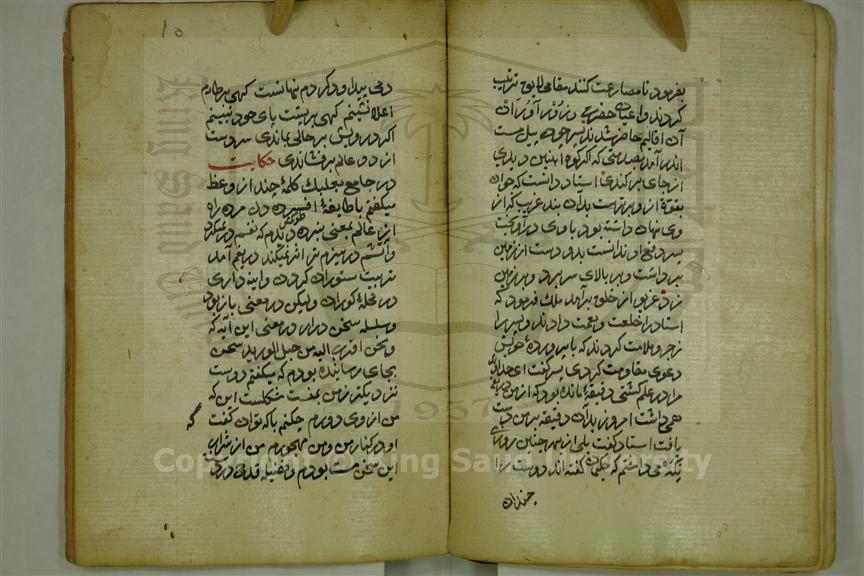 بفرمود تا مصارعت کنند مقامی لایق ترتیب
کردند و اعیان حضرت و زور آوران
آن اقالیم حاضر شدند پسر چون پیل مست
اندر آمد بصدمتی که اگر کوه آهنین دیدی
از جای برکندی استاد دانست که جوان
بقوة از و برترست بدان بند غریب که از
وی نهان داشته بود با وی در آویخت
پسر دفع او ندانست بدو دست از زمین
برداشت و بر بالای سر برد و بر زمین
زد غریو از خلق برآمد ملک فرمود که
استاد را خلعت و نعمت دادند و پسر را
زجر و ملامت کردند که با پرورده خویش
دعوی مقاومت کردی پسر گفت ای خداوند
مرا در علم کشتی دقیقه مانده بود که از من دریغ
همی داشت امروز بدان دقیقه بر من دست
یافت استاد گفت بلی از بهر چنین روزی
نگه می داشتم که حکما گفته اند دوست را
چندان
10
دمی پیدا و دیکر دم نهانست کهی بر طارم
اعلا نشینم کهی بر پشت پای خود نبینم
اکر درویش بر حالی بماندی سر دست
از دو عالم برفشاندی حکایت
در جامع بعلبک کلمهٔ چند از وعظ
میکفتم با طایفهٔ افسرده دل مرده راه
از عالم بمعنی نبرده دیدم که نفسم در نمیکیرد
و آتشم در هیزم تر اثر نمیکند دریغم آمد
تربیت ستوران کردن و اینه داری
در محلهٔ کوران ولیکن در معنی باز بود
و سلسله سخن دراز در معنی این آیه که
و نحن اقرب الیه من حبل الورید سخن
بجای رسانیده بودم که میکفتم دوست
نزدیکتر از من بمنست مشکلست این که
من از وی دورم چکنم با که توان کفت که
او در کنار من و من مهجورم من از شراب
این سخن مست بودم و فضله قدح در دست
Copyright © King Saud University
1957